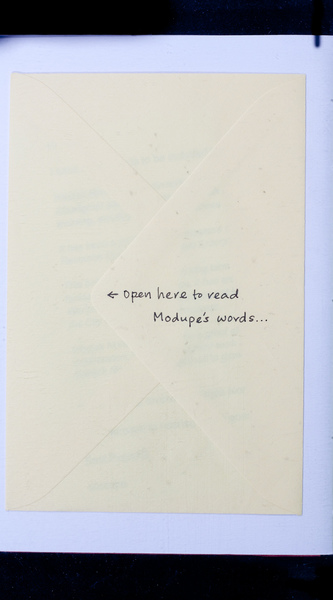 ← Open here to read
Modupe's words...